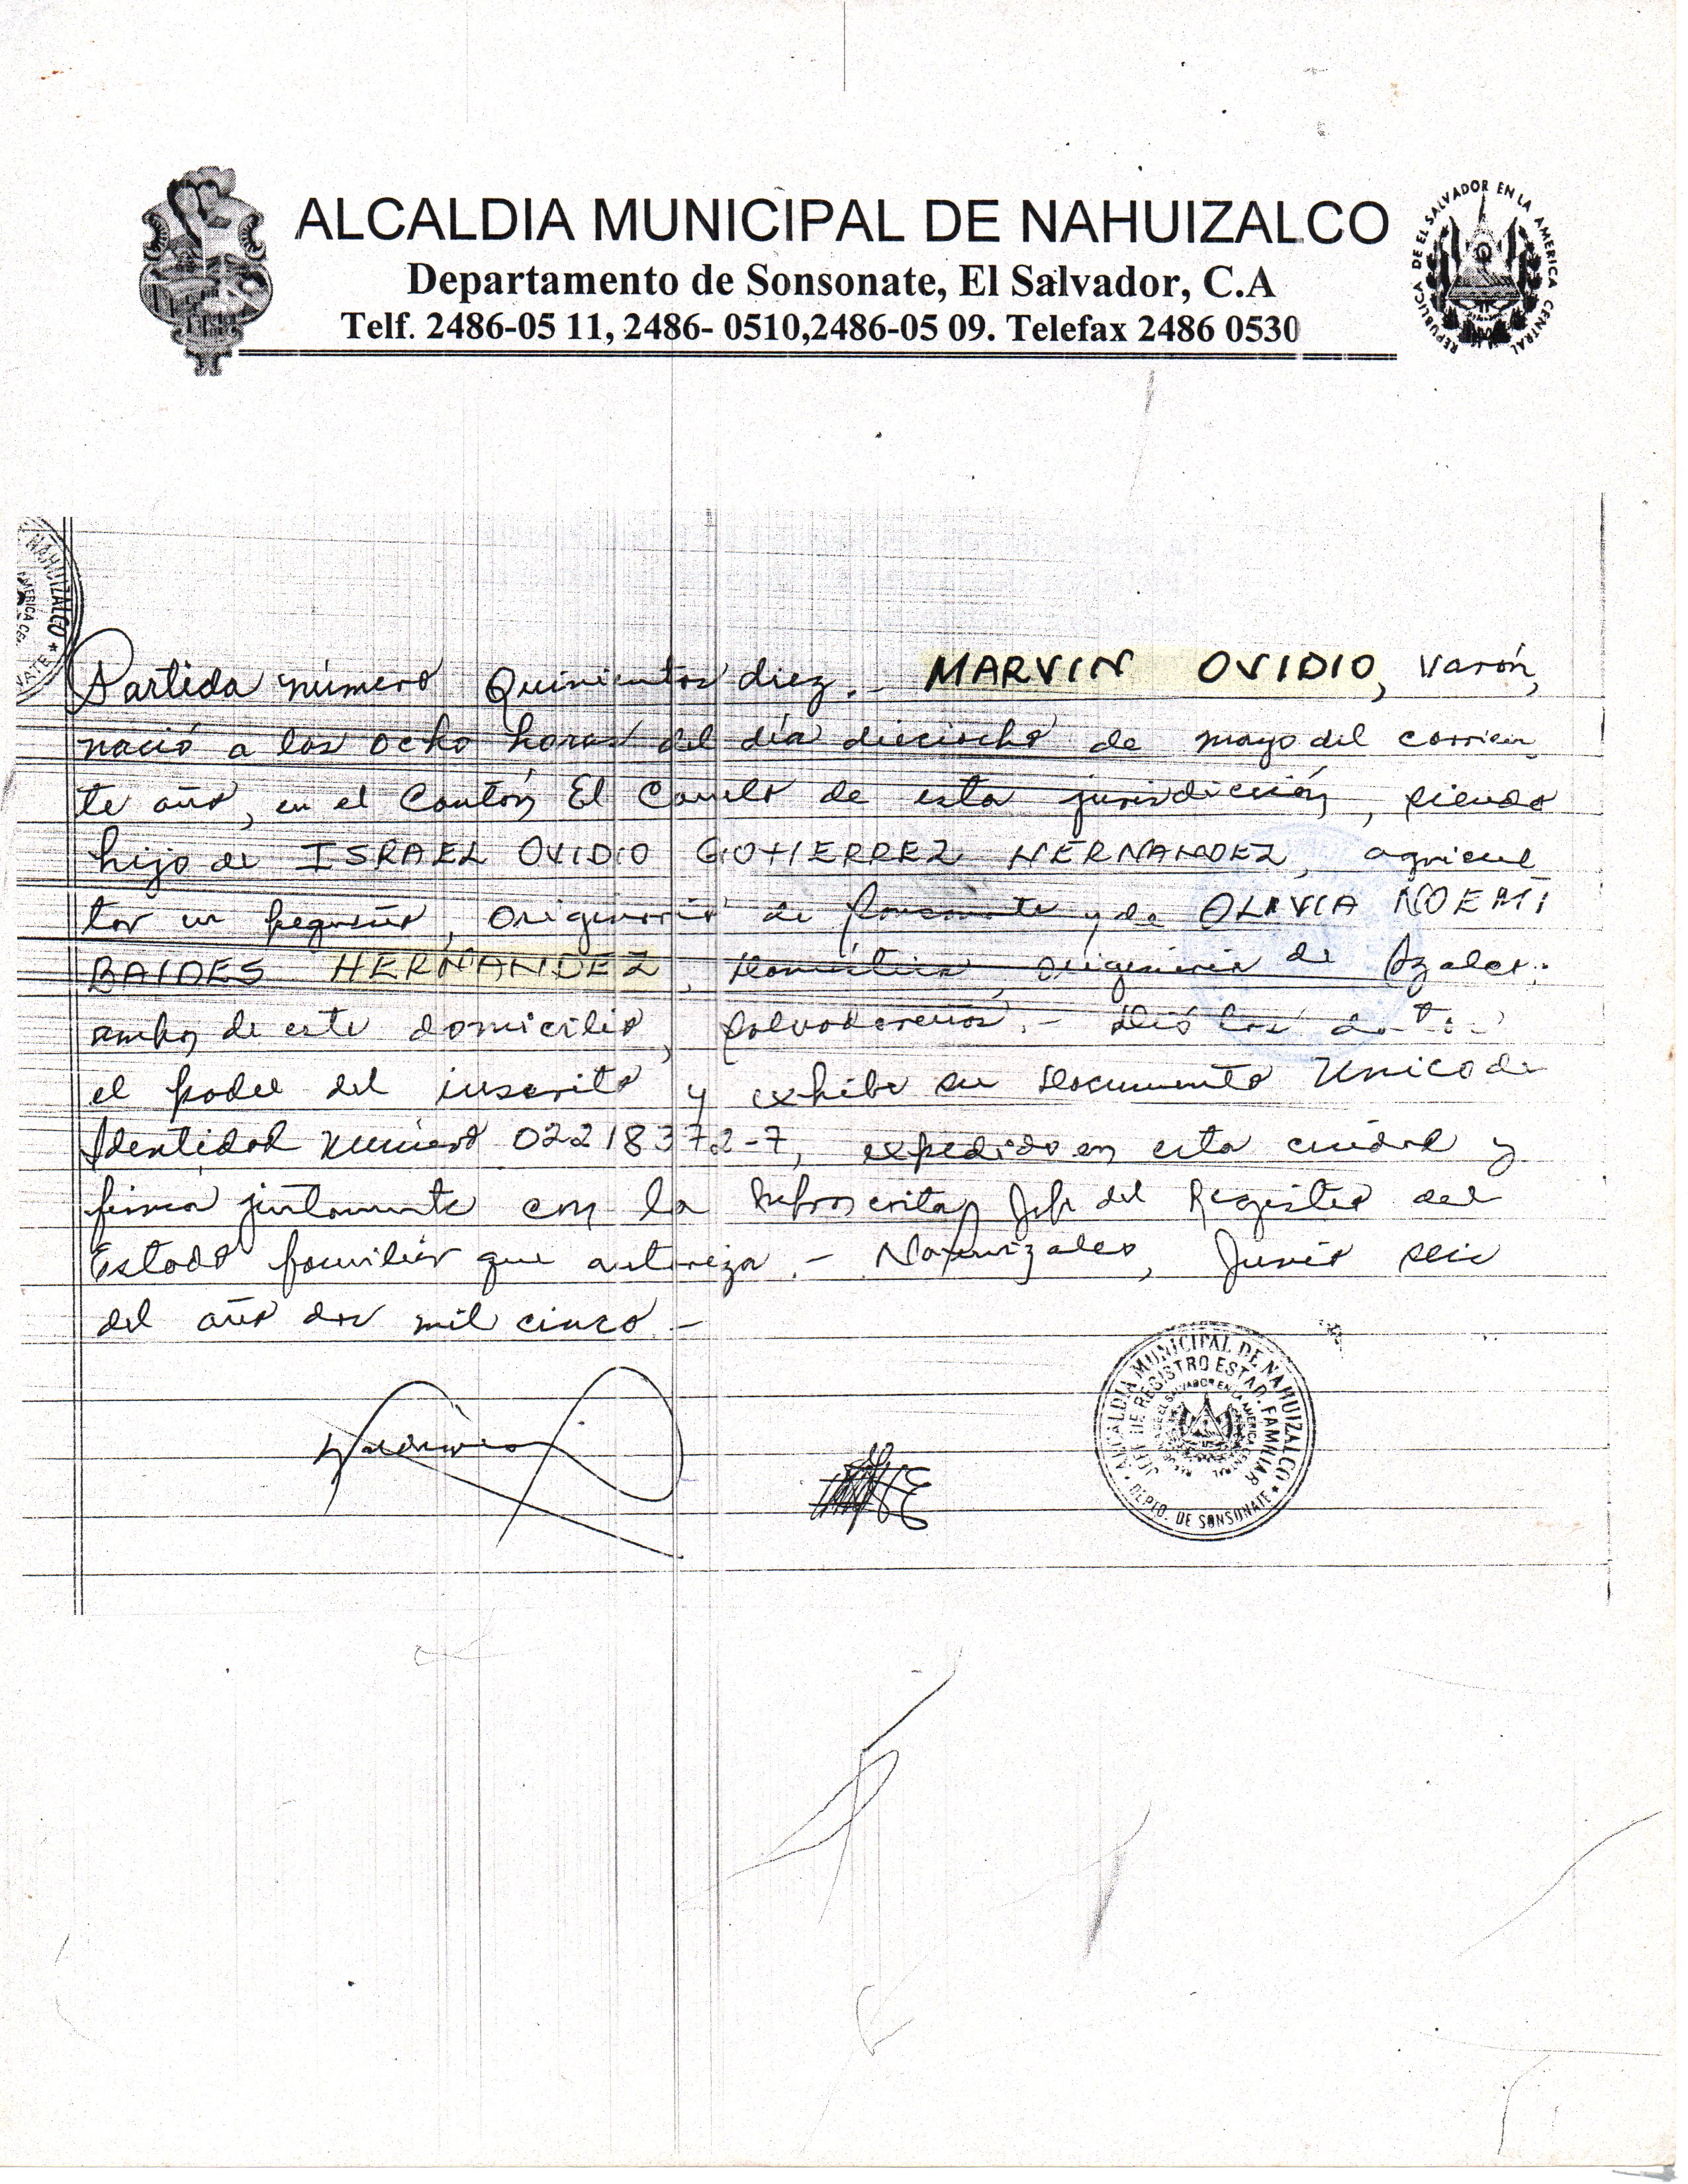 ALCALDIA MUNICIPAL DE NAHUIZALCO
Departamento de Sonsonate, El Salvador, C.A
Telf. 2486-05 11, 2486- 0510,2486-05 09. Telefax 2486 0530
REPUBLICA DE EL SALVADOR EN LA AMERICA CENTRAL
NAHUIZALCO *
Partida número Quinientos diez.- MARVIN OVIDIO, varón,
nació a las ocho horas del día dieciocho de mayo del corrien
te año, en el Cantón El Canelo de esta jurisdicción, siendo
hijo de ISRAEL OVIDIO GUTIERREZ HERNANDEZ, agricul
tor en pequeño, originario de Sonsonate y de OLIVIA NOEMI
BAIDES HERNANDEZ, doméstica, originaria de Izalco.
ambos de este domicilio, salvadoreños.- Dió los datos
el padre del inscrito y exhibe su Documento Unico de
Identidad número 02218372-7, expedido en esta ciudad y
firma juntamente con la Infrascrita Jefe del Registro del
Estado familiar que autoriza.- Nahuizalco, Junio seis
del año dos mil cinco.-
ALCALDIA MUNICIPAL DE NAHUIZALCO
JEFE DE REGISTRO ESTAD. FAMILIAR
* DEPTO. DE SONSONATE *